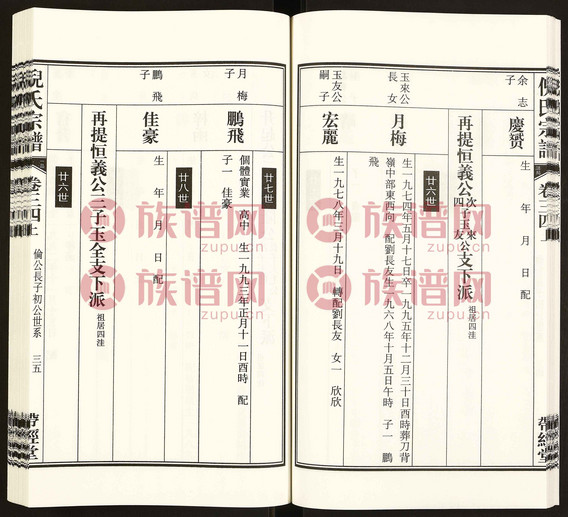 倪氏宗譜
卷三四上
帶經堂
余志
子
慶赟
生 年 月 日 配
再提恒義公次子玉來四子玉友公支下派 祖居四洼
廿六世
玉來公
長女
月梅
生一九七四年五月十七日卒一九九五年十二月三十日酉時葬刀背
嶺中部東西向 配劉長友生一九六八年十月五日午時 子一 鵬
飛
玉友公
嗣子
宏麗
生一九七八年三月十九日 轉配劉長友 女一 欣欣
廿七世
月梅
子
鵬飛
個體實業 高中 生一九九三年正月十一日酉時 配
子一 佳豪
廿八世
鵬飛
子
佳豪
生 年 月 日 配
再提恒義公三子玉全支下派 祖居四洼
廿六世
倪氏宗譜
卷三四上
倫公長子初公世系
三五
帶經堂
族谱网
zupu.cn
族谱网
zupu.cn
族谱网
zupu.cn
族谱网
zupu.cn